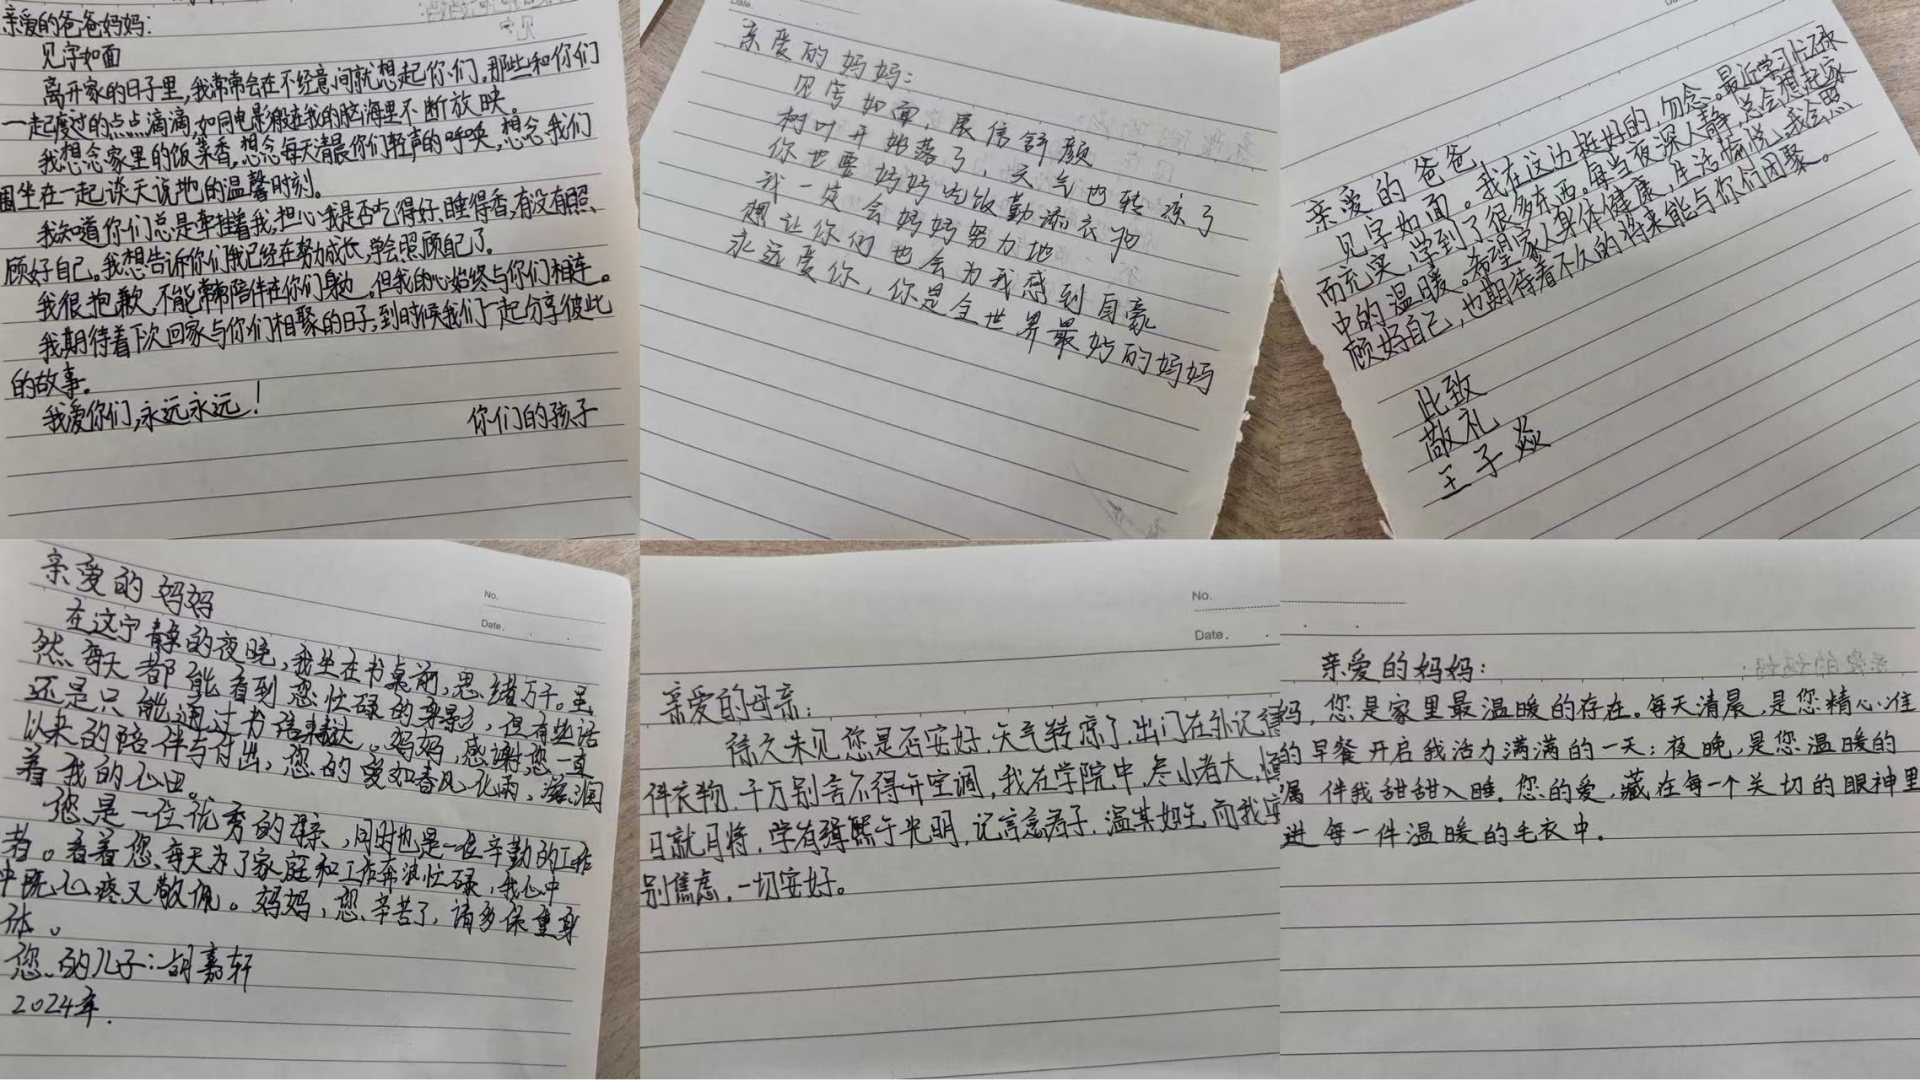 亲爱的爸爸妈妈:
见字如面
离开家的日子里,我常常会在不经意间就想起你们,那些和你们
一起度过的点点滴滴,如同电影般在我的脑海里不断放映。
我想念家里的饭菜香,想念每天清晨你们轻声的呼唤,想念我们
围坐在一起谈天说地的温馨时刻。
我知道你们总是牵挂着我,担心我是否吃得好,睡得香,有没有照
顾好自己。我想告诉你们我已经在努力成长,学会照顾自己了。
我很抱歉,不能常常陪伴在你们身边,但我的心始终与你们相连。
我期待着下次回家与你们相聚的日子,到时候我们一起分享彼此
的故事。
我爱你们,永远永远!
你们的孩子
Date.
亲爱的妈妈:
见字如面,展信舒颜
树叶开始落了,天气也转凉了
你也要妈妈吃饭勤添衣物
我一定会妈妈努力地
想让你们也会为我感到自豪
永远爱你,你是全世界最好的妈妈
亲爱的爸爸
见字如面。我在这边挺好的,勿念。最近学习忙碌
而充实,学到了很多东西。每当夜深人静,总会想起家
中的温暖。希望家人身体健康,生活愉悦,我会照
顾好自己,也期待着不久的将来能与你们团聚。
此致
敬礼
王子焱
亲爱的妈妈
No.
Date.
在这宁静的夜晚,我坐在书桌前,思绪万千。虽
然每天都能看到您忙碌的身影,但有些话
还是只能通过书信来表达。妈妈,感谢您一直
以来的陪伴与付出,您的爱如春风化雨,滋润
着我的心田。
您是一位优秀的母亲,同时也是一位辛勤的工作
者。看着您每天为了家庭和工作奔波忙碌,我心中
中既心疼又敬佩。妈妈,您辛苦了,请多保重身
体。
您的儿子:胡嘉轩
2024年.
No.
Date.
亲爱的母亲:
许久未见,您是否安好,天气转凉了,出门在外记得
件衣物,千万别舍不得开空调,我在学院中,尽小者大,慎
日就月将,学有缉熙于光明,记言念君子,温其如玉,而我安
别焦虑,一切安好。
亲爱的妈妈:
妈,您是家里最温暖的存在。每天清晨,是您精心准
的早餐开启我活力满满的一天;夜晚,是您温暖的
嘱伴我甜甜入睡。您的爱,藏在每一个关切的眼神里
进每一件温暖的毛衣中.